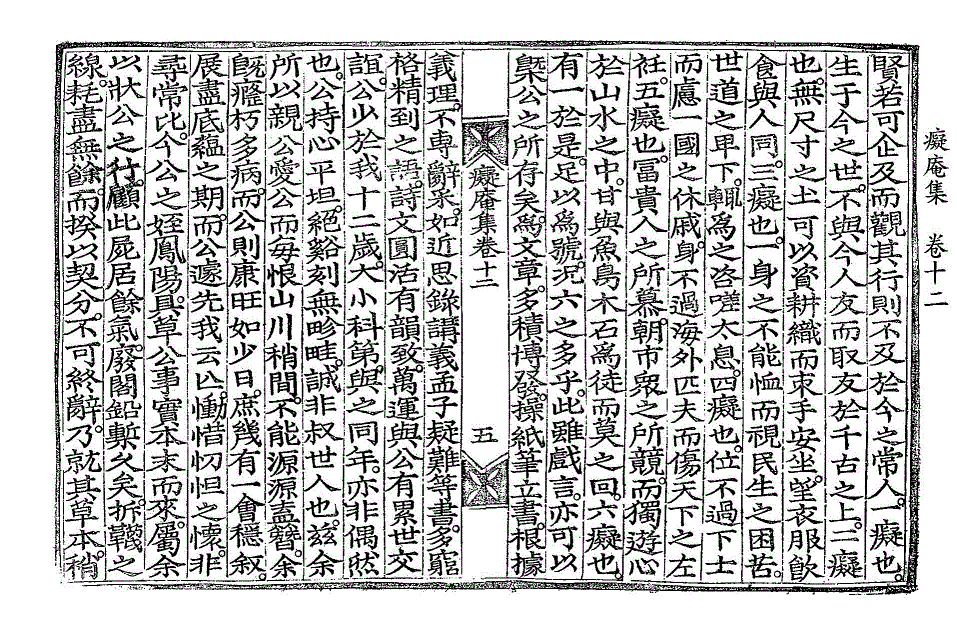 癡庵集　卷十二
賢若可企及而觀其行則不及於今之常人一癡也
生于今之世不與今人友而取友於千古之上二癡
也無尺寸之土可以資耕織而束手安坐望衣服飮
食與人同三癡也一身之不能恤而視民生之困苦
世道之卑下輒爲之咨嗟太息四癡也位不過下士
而慮一國之休戚身不過海外匹夫而傷天下之左
衽五癡也富貴人之所慕朝市衆之所競而獨遊心
於山水之中甘與魚鳥木石爲徒而莫之回六癡也
有一於是足以爲號况六之多乎此雖戱言亦可以
槩公之所存矣爲文章多積博發操紙筆立書根據
癡庵集卷十二
五
義理不專辭采如近思錄講義孟子疑難等書多窮
格精到之語詩文圓活有韻致萬運與公有累世交
誼公少於我十二歲大小科第與之同年亦非偶然
也公持心平坦絕谿刻無畛畦誠非叔世人也玆余
所以親公愛公而每恨山川稍間不能源源盍簪余
旣癃朽多病而公則康旺如少日庶幾有一會穩叙
展盡底蘊之期而公遽先我云亡慟惜忉怛之懷非
尋常比今公之姪鳳陽具草公事實本末而來屬余
以狀公之行顧此屍居餘氣廢閣鉛槧久矣折韈之
線耗盡無餘而揆以契分不可終辭乃就其草本稍